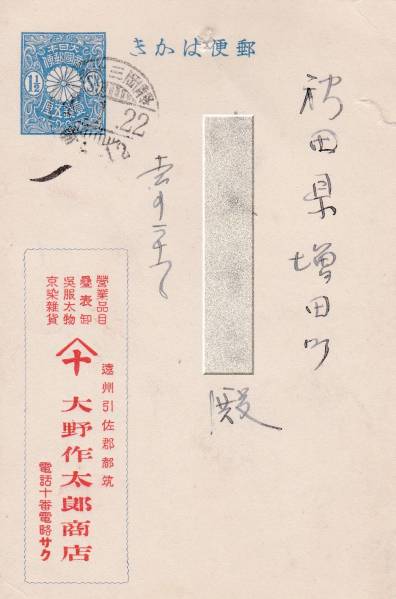 郵便はかき
大日本帝國郵便
1½
22
秋田県増田町
殿
營業品目
疊表卸
呉服太物
京染雜貨
十
遠州引佐郡都筑
大野作太郎商店
電話十番電略サク